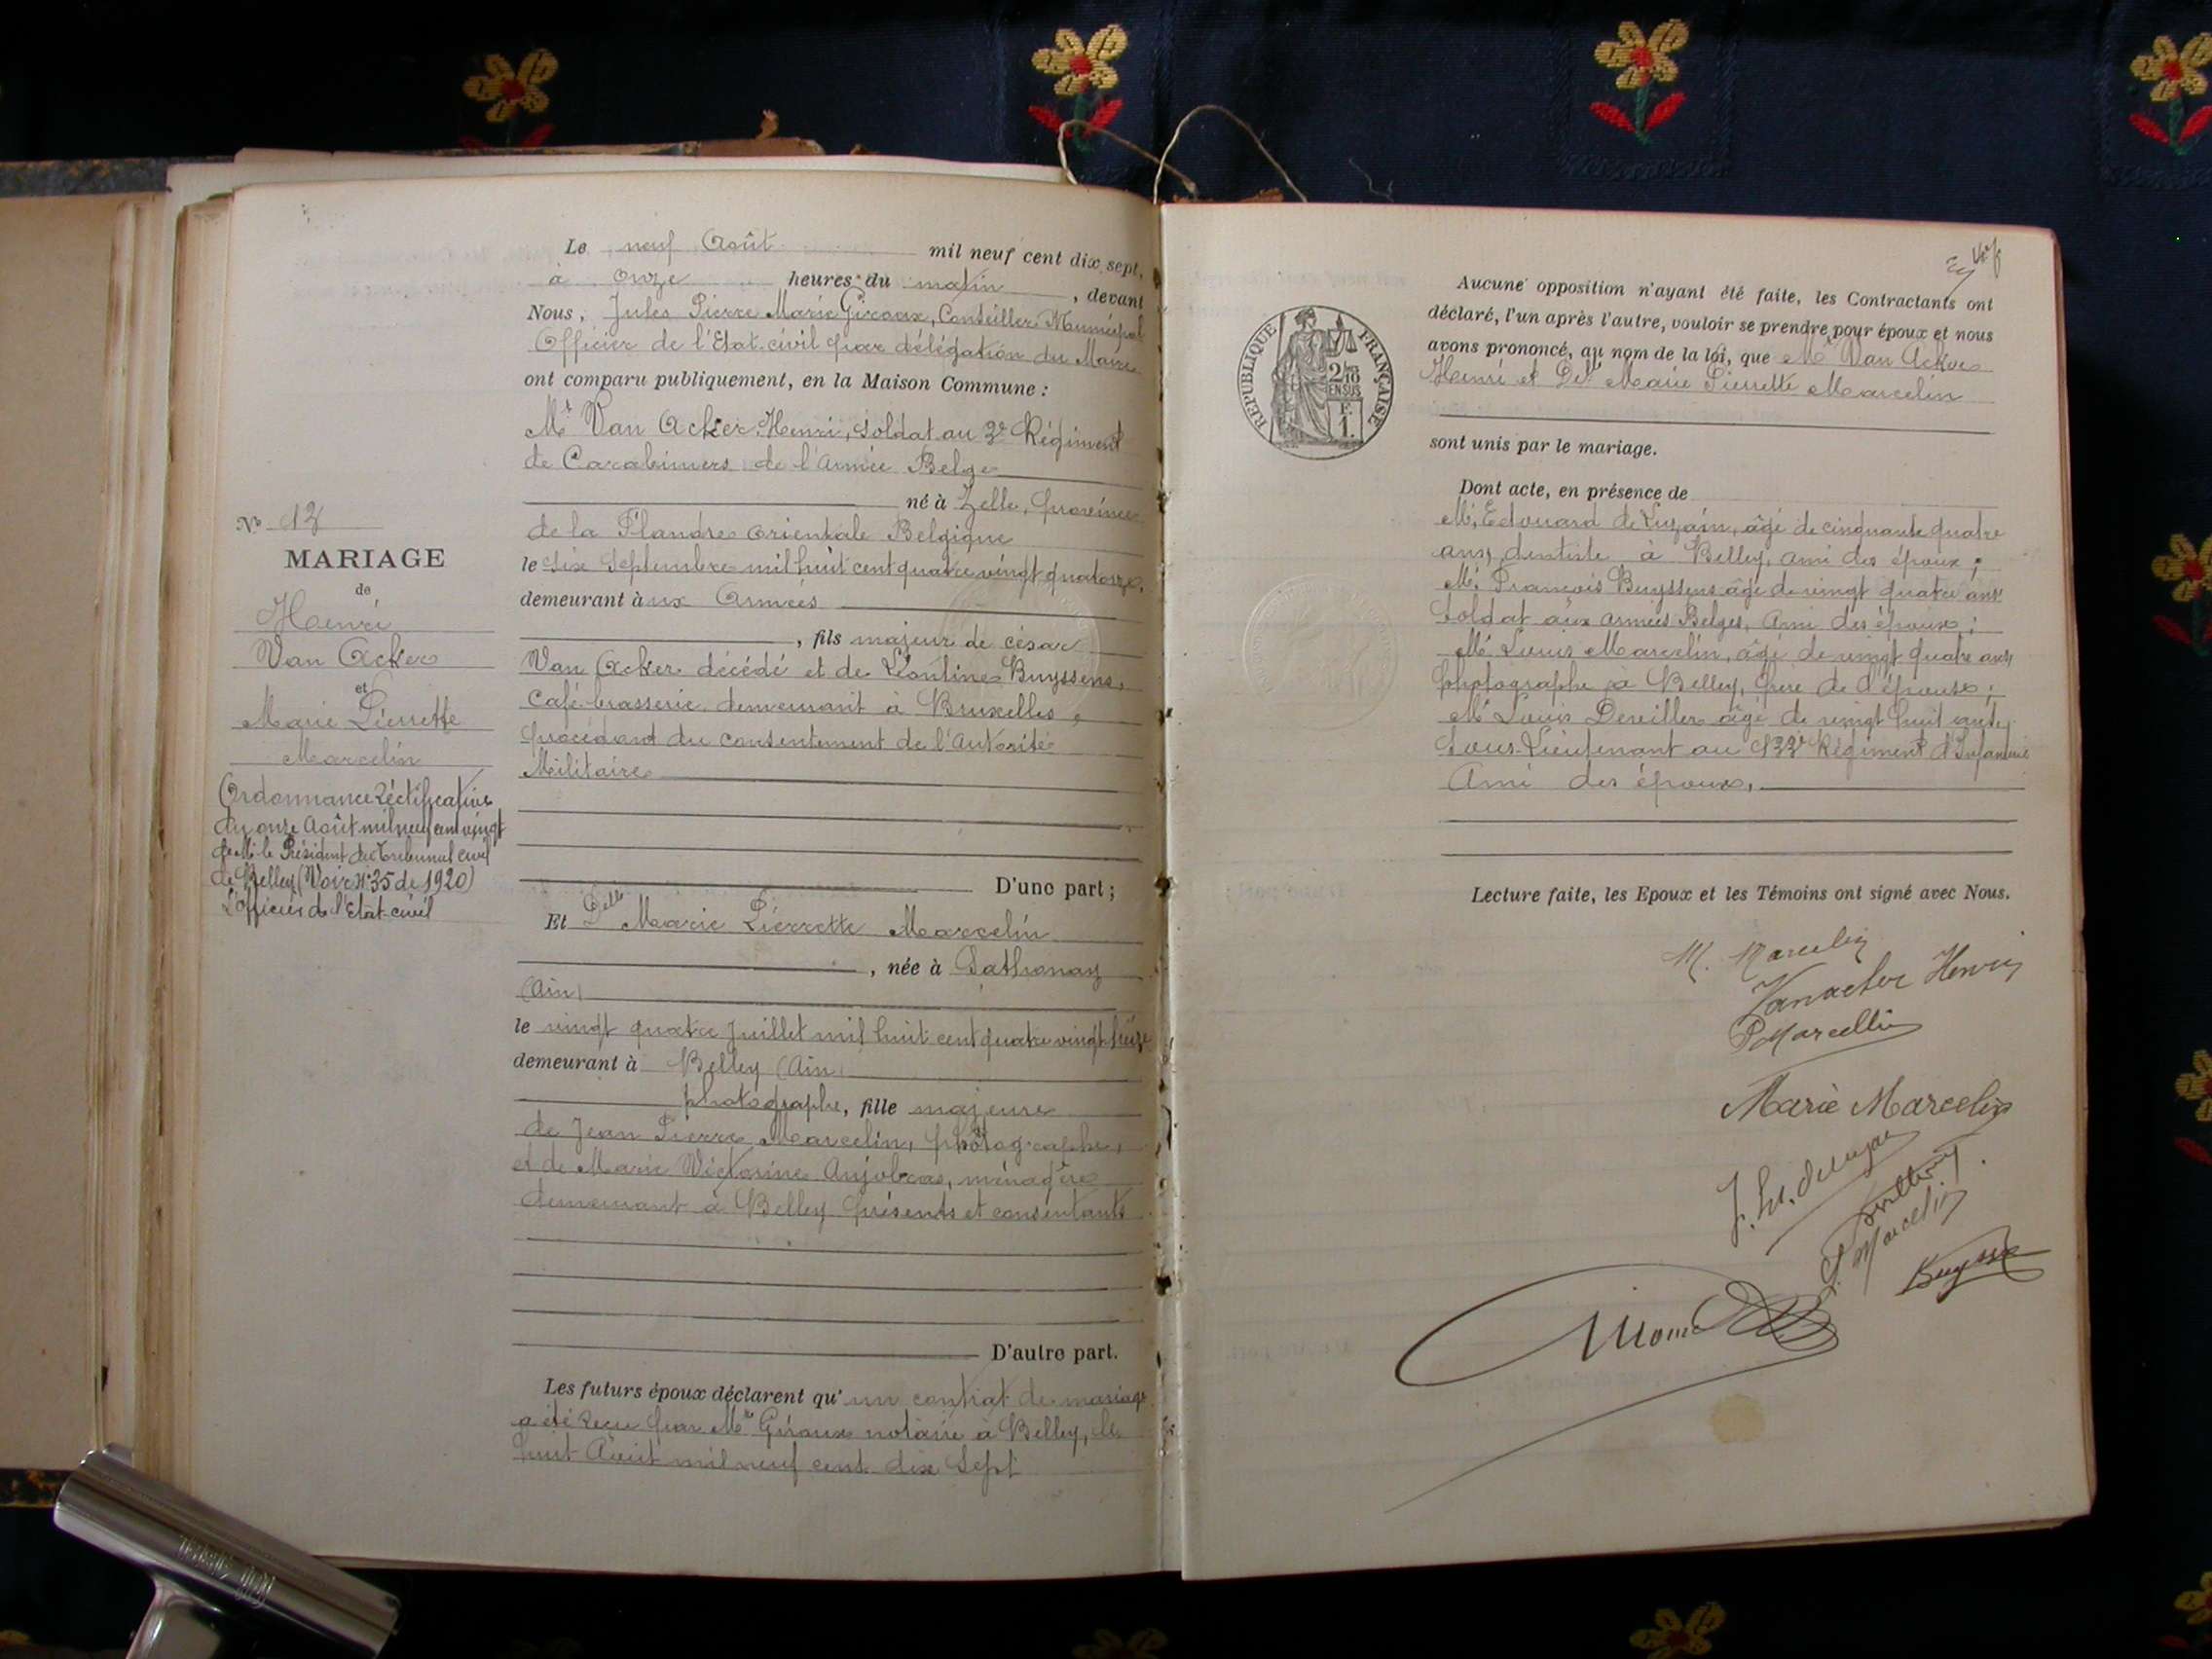 Le neuf Août mil neuf cent dix sept,
à onze heures du matin, devant
Nous, Jules Pierre Marie Giroux, Conseiller Municipal
Officier de l'Etat civil par délégation du Maire
ont comparu publiquement, en la Maison Commune :
Mr Van Acker Henri, soldat au 3e Régiment
de Carabiniers de l'Armée Belge
né à Zelle, province
de la Flandre orientale Belgique
le six Septembre mil huit cent quatre vingt quatorze,
demeurant aux Armées
, fils majeur de césar
Van Acker décédé et de Léontine Buyssens,
café-brasserie demeurant à Bruxelles,
procédant du consentement de l'Autorité
Militaire
D'une part ;
Et Delle Marie Pierrette Marcelin
, née à Sathonay
(Ain)
le vingt quatre Juillet mil huit cent quatre vingt seize
demeurant à Belley (Ain)
photographe, fille majeure
de Jean Pierre Marcelin, photographe,
et de Marie Victorine Anjolras, ménagère
demeurant à Belley présents et consentants
D'autre part.
Les futurs époux déclarent qu'un contrat de mariage
a été reçu par Me Giroux notaire à Belley, le
huit Août mil neuf cent dix sept
No 12
MARIAGE
de
Henri
Van Acker
et
Marie Pierrette
Marcelin
Ordonnance Réctificative
du onze Août mil neuf cent vingt
de Mr le Président du Tribunal civil
de Belley (Voir No 35 de 1920)
L'officier de l'Etat-civil
Aucune opposition n'ayant été faite, les Contractants ont
déclaré, l'un après l'autre, vouloir se prendre pour époux et nous
avons prononcé, au nom de la loi, que Mr Van Acker
Henri et Delle Marie Pierrette Marcelin
sont unis par le mariage.
RÉPUBLIQUE FRANÇAISE
2/10
EN SUS
F.
1.
Dont acte, en présence de
Mr Edouard de Luzain, âgé de cinquante quatre
ans, dentiste à Belley, ami des époux ;
Mr François Buyssens âgé de vingt quatre ans
soldat aux armées Belges, Ami des époux ;
Mr Louis Marcelin, âgé de vingt quatre ans
photographe à Belley, frère de l'épouse ;
Mr Louis Deviller âgé de vingt huit ans,
Sous-Lieutenant au 133e Régiment d'Infanterie
Ami des époux,
Lecture faite, les Epoux et les Témoins ont signé avec Nous.
M. Marcelin
Vanacker Henri
P Marcellin
Marie Marcelin
Marcelin